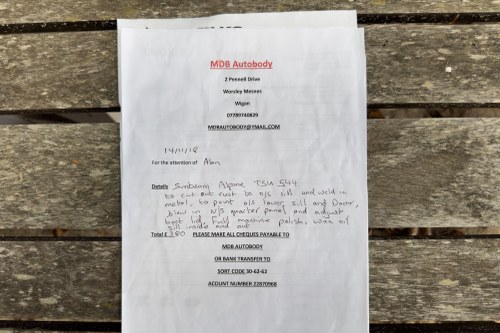 MDB Autobody
2 Pennell Drive
Worsley Mesnes
Wigan
07789740829
MDRAUTOBODY@YMAIL.COM
14/11/18
For the attention of Alan
Details Sunbeam Alpine TSU 544
to cut out rust to o/s sill and weld in
metal, to paint o/s lower sill and Door,
blow in N/S quarter panel and adjust
boot lid, Full machine polish, wax oil
sill inside and out
Total £ 380 PLEASE MAKE ALL CHEQUES PAYABLE TO
MDB AUTOBODY
OR BANK TRANSFER TO
SORT CODE 30-62-62
ACOUNT NUMBER 22870968